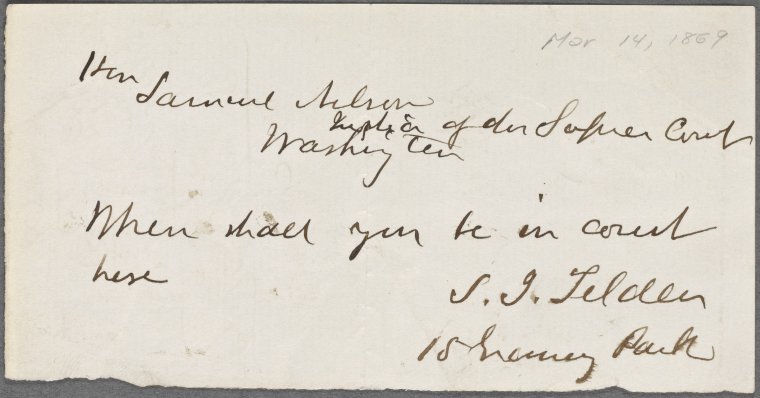 Mar 14, 1869
Hon
Samuel Nelson
Justice of the Supreme Court
Washington
When shall you be in court
here
S. J. Tilden
15 Gramercy Park